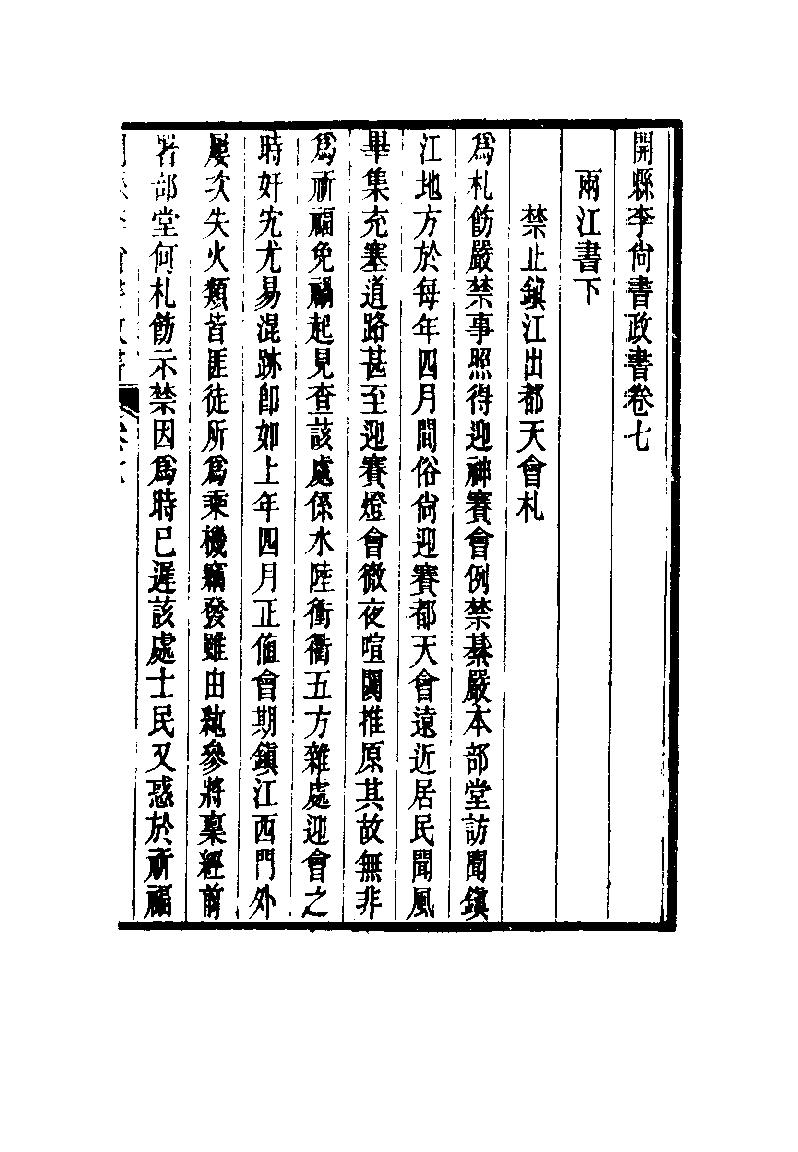 開縣李尙書政書卷七
兩江書下
禁止鎭江出都天會札
爲札飭嚴禁事照得迎神賽會例禁綦嚴本部堂訪聞鎭
江地方於每年四月間俗尙迎賽都天會遠近居民聞風
畢集充塞道路甚至迎賽燈會徹夜喧闐推原其故無非
爲祈福免禍起見查該處係水陸衝衢五方雜處迎會之
時奸宄尤易混跡卽如上年四月正值會期鎭江西門外
屢次失火類皆匪徒所爲乘機竊發雖由 參將稟經前
署部堂何札飭示禁因爲時已遲該處士民又惑於祈福